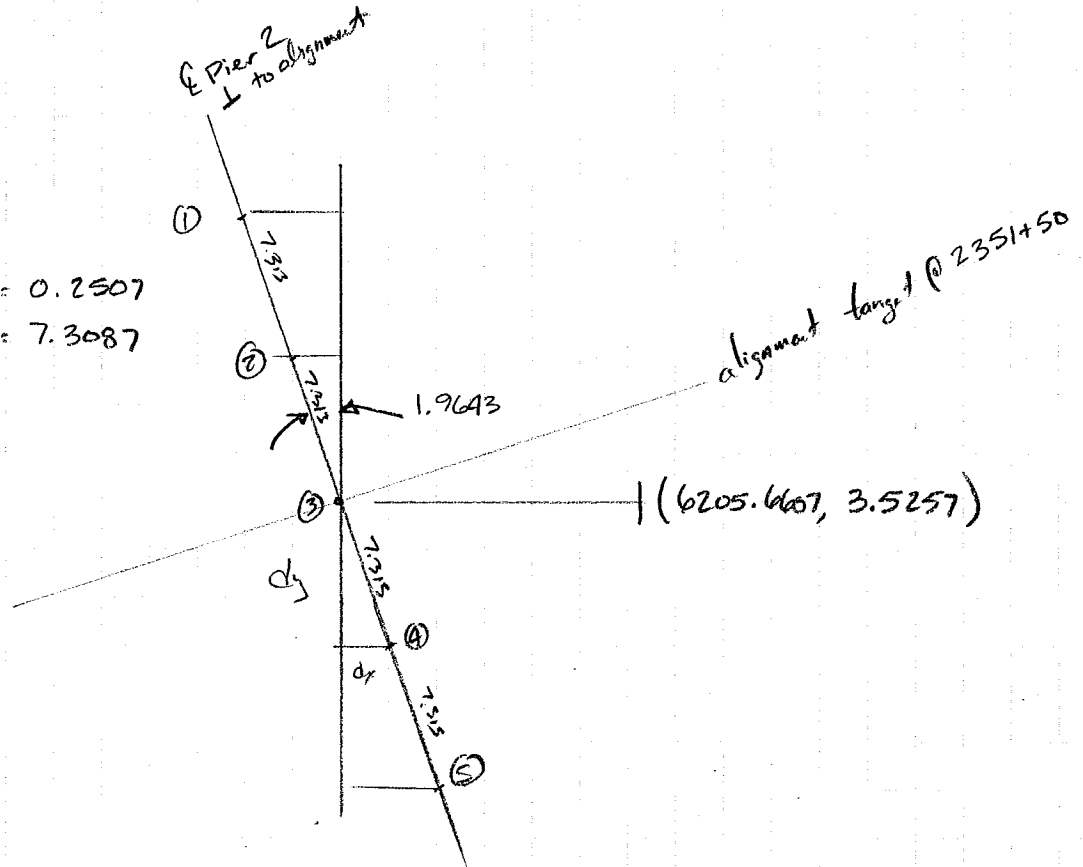 ℄ Pier 2
⊥ to alignment
①
7.313
= 0.2507
= 7.3087
②
7.313
1.9643
alignment tangent @ 2351+50
③
(6205.6607, 3.5257)
dy
7.313
④
dx
7.313
⑤